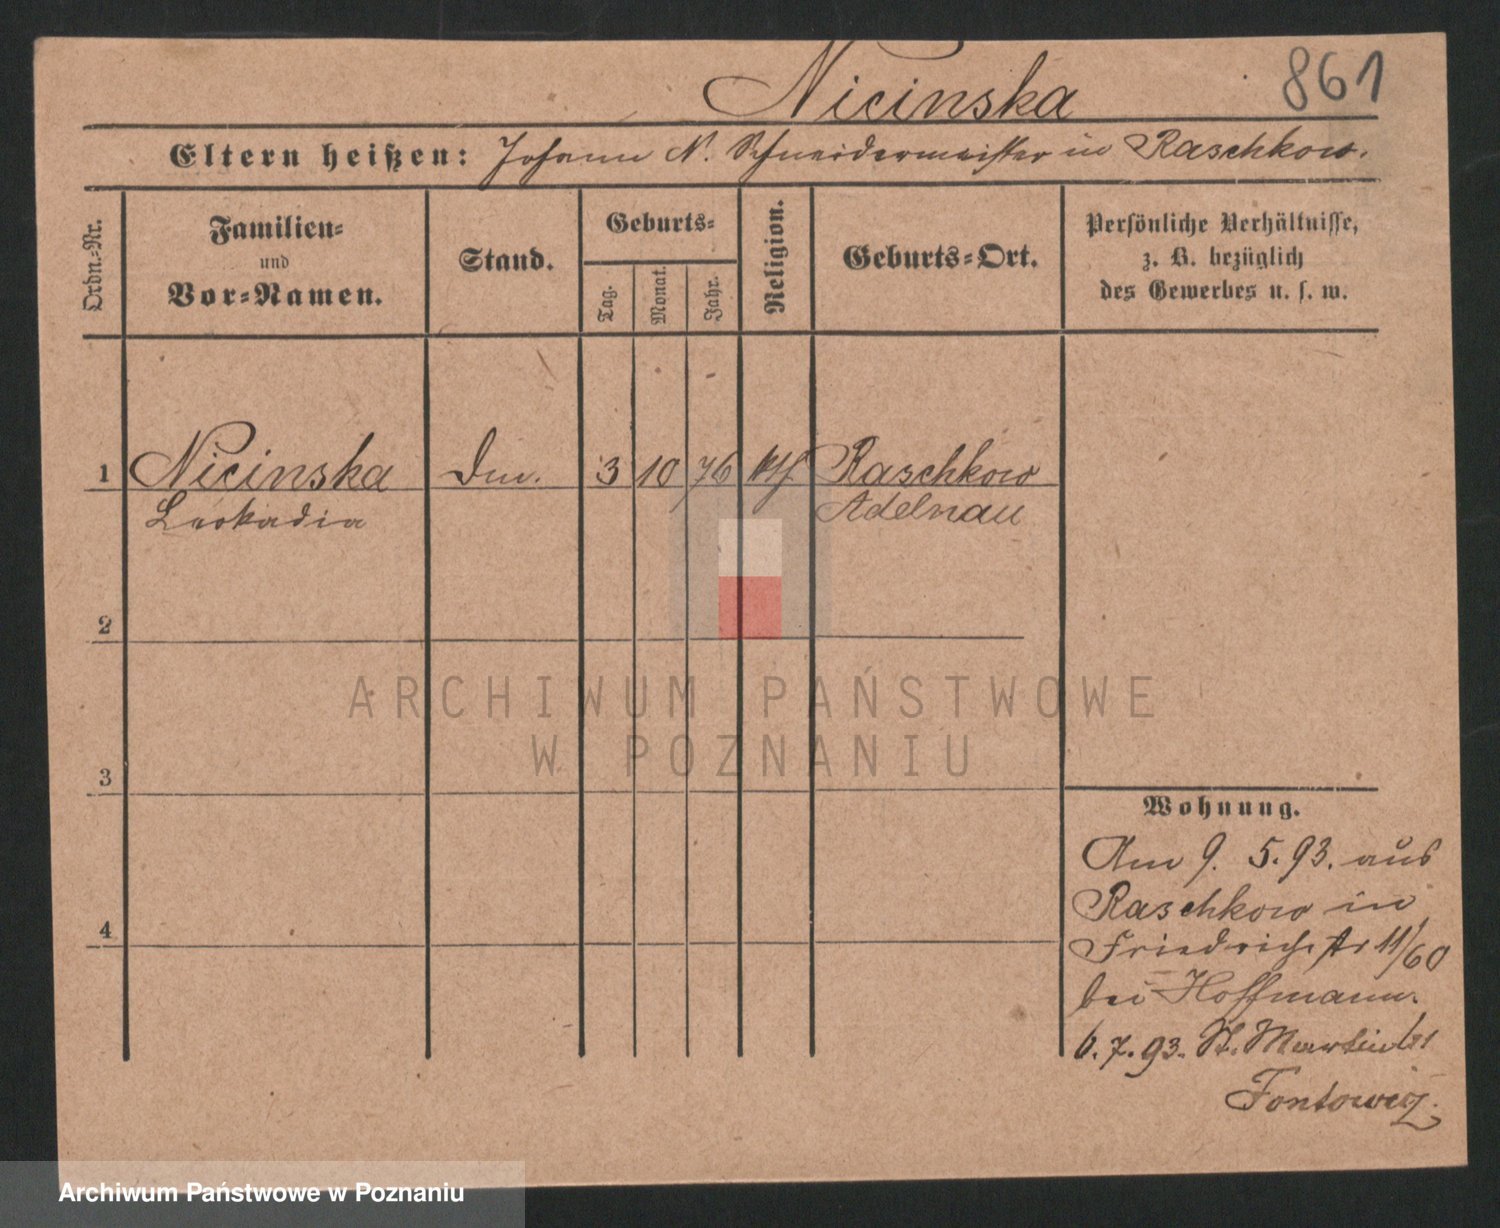 Nicinska 861
Eltern heißen: Johann N. Schneidermeister in Raschkow.
Ordn.-Nr.
Familien-
und
Vor-Namen.
Stand.
Geburts-
Tag.
Monat.
Jahr.
Religion.
Geburts-Ort.
Persönliche Verhältnisse,
z. B. bezüglich
des Gewerbes u. s. w.
1 Nicinska 3 10 76 kth Raschkow
Leokadia Adelnau
2
3
4
Wohnung.
Am 9. 5. 93. aus
Raschkow in
Friedrichstr 11/60
bei Hoffmann.
6. 7. 93. St. Martin
Fontowicz.
ARCHIWUM PAŃSTWOWE
W POZNANIU
Archiwum Państwowe w Poznaniu